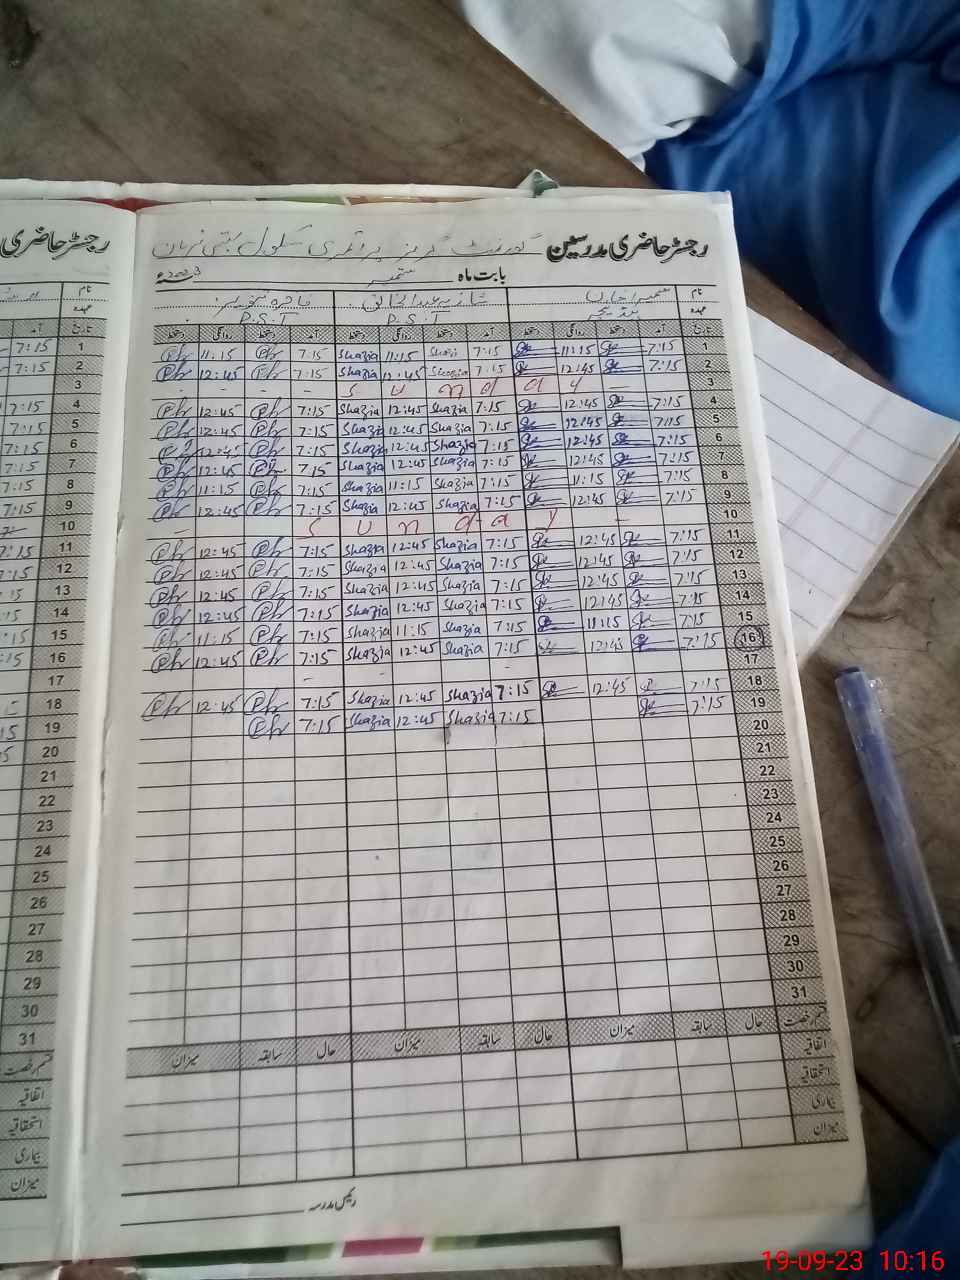 رجسٹر حاضری مدرسین گورنمنٹ گرلز پرائمری سکول بستی
بابت ماہ ستمبر 2023ء
نام
عہدہ P.S.T P.S.T
تاریخ آمد دستخط روانگی دستخط آمد دستخط روانگی دستخط آمد دستخط روانگی دستخط
1 7:15 11:15 7:15 Shazia 11:15 Shazia 7:15 11:15
2 7:15 12:45 7:15 Shazia 12:45 Shazia 7:15 12:45
3 S u n d a y
4 7:15 12:45 7:15 Shazia 12:45 Shazia 7:15 12:45
5 7:15 12:45 7:15 Shazia 12:45 Shazia 7:15 12:45
6 7:15 12:45 7:15 Shazia 12:45 Shazia 7:15 12:45
7 7:15 12:45 7:15 Shazia 12:45 Shazia 7:15 12:45
8 7:15 11:15 7:15 Shazia 11:15 Shazia 7:15 11:15
9 7:15 12:45 7:15 Shazia 12:45 Shazia 7:15 12:45
10 S u n d a y
11 7:15 12:45 7:15 Shazia 12:45 Shazia 7:15 12:45
12 7:15 12:45 7:15 Shazia 12:45 Shazia 7:15 12:45
13 7:15 12:45 7:15 Shazia 12:45 Shazia 7:15 12:45
14 7:15 12:45 7:15 Shazia 12:45 Shazia 7:15 12:45
15 7:15 11:15 7:15 Shazia 11:15 Shazia 7:15 11:15
16 7:15 12:45 7:15 Shazia 12:45 Shazia 7:15 12:45
17
18 7:15 12:45 7:15 Shazia 12:45 Shazia 7:15 12:45
19 7:15 7:15 Shazia 12:45 Shazia 7:15
20
21
22
23
24
25
26
27
28
29
30
31
قسم رخصت حال سابقہ میزان حال سابقہ میزان حال سابقہ میزان
اتفاقیہ
استحقاقیہ
بیماری
میزان
رئیس مدرسہ
رجسٹر حاضری
نام
عہدہ
تاریخ آمد
1 7:15
2 7:15
3
4 7:15
5 7:15
6 7:15
7 7:15
8 7:15
9 7:15
10
11 7:15
12 7:15
13
14
15
16
17
18
19
20
21
22
23
24
25
26
27
28
29
30
31
قسم رخصت
اتفاقیہ
استحقاقیہ
بیماری
میزان
19-09-23 10:16